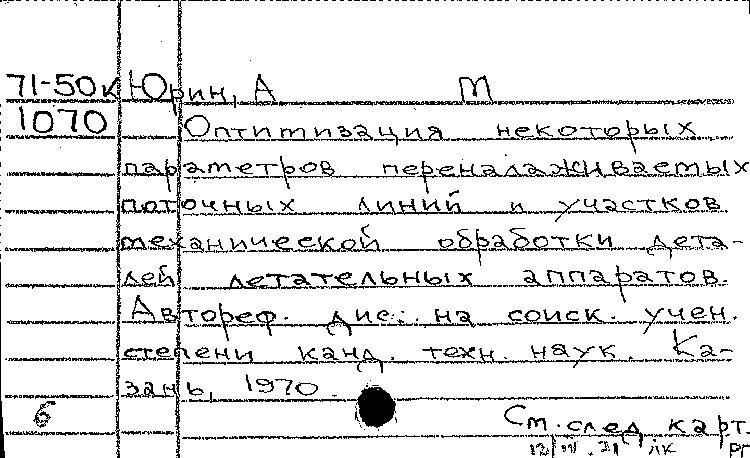 71-50к Юрин, А М
1070 Оптимизация некоторых
параметров переналаживаемых
поточных линий и участков
механической обработки дета-
лей летательных аппаратов.
Автореф. дис. на соиск. учен.
степени канд. техн. наук. Ка-
зань, 1970.
6
См. след карт.